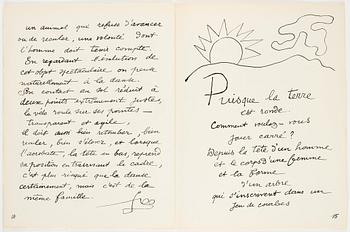 un animal qui refuse d'avancer
ou de reculer, une volonté dont
l'homme doit tenir compte.
En regardant l'évolution de
cet objet spectaculaire on pense
naturellement à la danse.
Son contact au sol réduit à
deux points extrêmement justes,
le vélo roule sur ses pointes —
transparent et agile,
il doit aussi bien retomber, bien
rouler, bien s'élever, et lorsque
l'acrobate, la tête en bas, reprend
sa position en traversant le cadre,
c'est plus risqué que la danse
certainement, mais c'est de la
même famille.
14
Puisque la terre
est ronde
Comment voulez-vous
jouer carré ?
Depuis la tête d'un homme
et le corps d'une femme
et la forme
d'un arbre
qui s'inscrivent dans un
jeu de courbes
15